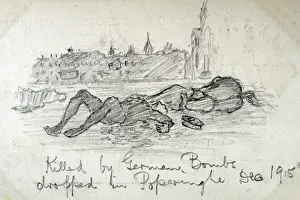 Killed by German Bombs
dropped in Poperinghe Dec 1915